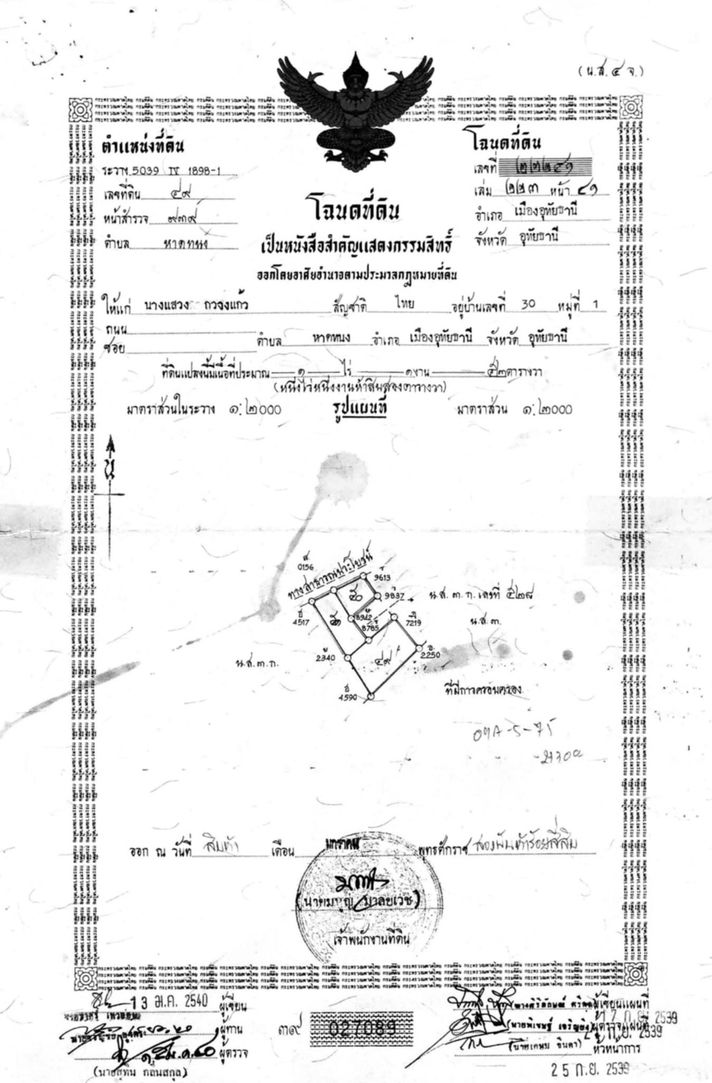 (น.ส. ๔ จ.)
ตำแหน่งที่ดิน
ระวาง 5039 IV 1898-1
เลขที่ดิน ๔๙
หน้าสำรวจ
ตำบล หาดทนง
โฉนดที่ดิน
เลขที่ ๒๒๒๔๑
เล่ม ๒๒๓ หน้า ๔๑
อำเภอ เมืองอุทัยธานี
จังหวัด อุทัยธานี
โฉนดที่ดิน
เป็นหนังสือสำคัญแสดงกรรมสิทธิ์
ออกโดยอาศัยอำนาจตามประมวลกฎหมายที่ดิน
ให้แก่ นางแสวง สัญชาติ ไทย อยู่บ้านเลขที่ 30 หมู่ที่ 1
ถนน
ซอย ตำบล หาดทนง อำเภอ เมืองอุทัยธานี จังหวัด อุทัยธานี
ที่ดินแปลงนี้มีเนื้อที่ประมาณ ๑ ไร่ ๑ งาน ๕๒ ตารางวา
(หนึ่งไร่หนึ่งงานห้าสิบสองตารางวา)
มาตราส่วนในระวาง ๑:๒๐๐๐ รูปแผนที่ มาตราส่วน ๑:๒๐๐๐
น
0156
ทางสาธารณประโยชน์
9613
๕๐
9837
น.ส.๓ ก. เลขที่ ๕๒๘
4517
๕๑
8785
7219
น.ส.๓.
2340
๔๙
2250
น.ส.๓ก.
4590
ที่มีการครอบครอง
ออก ณ วันที่ สิบห้า เดือน มกราคม พุทธศักราช สองพันห้าร้อยสี่สิบ
เจ้าพนักงานที่ดิน
13 ม.ค. 2540 ผู้เขียน
ผู้ทาน
ผู้ตรวจ
๓๙ 027089
ผู้เขียนแผนที่
ผู้ตรวจแผนที่
หัวหน้าการ
25 ก.ย. 2539